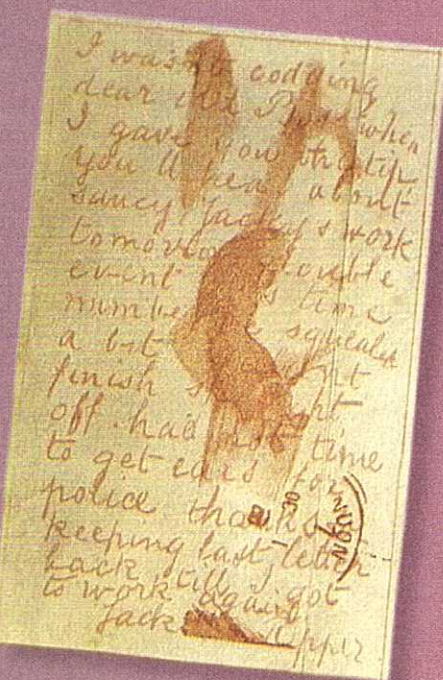 I wasn't codding
dear old Boss when
I gave you the tip
you'll hear about
saucy Jackys work
tomorrow double
event this time
number one squealed
a bit couldnt
finish straight
off. had not time
to get ears for
police thanks for
keeping last letter
back till I got
to work again.
Jack the Ripper